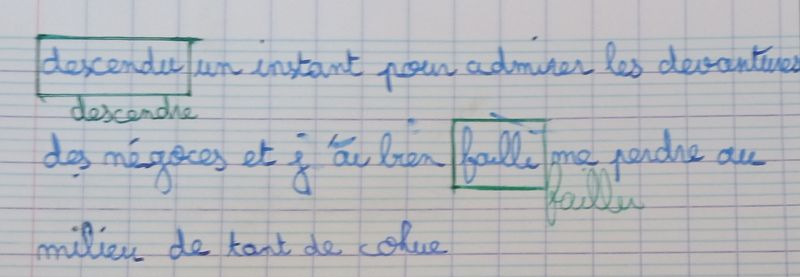 descendu un instant pour admirer les devantures
descendre
des négoces et j'ai bien failli me perdre au
faillu
milieu de tant de cohue